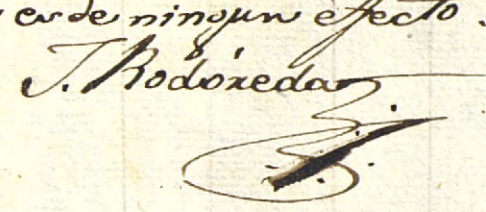 es de ningun efecto
J. Rodóreda